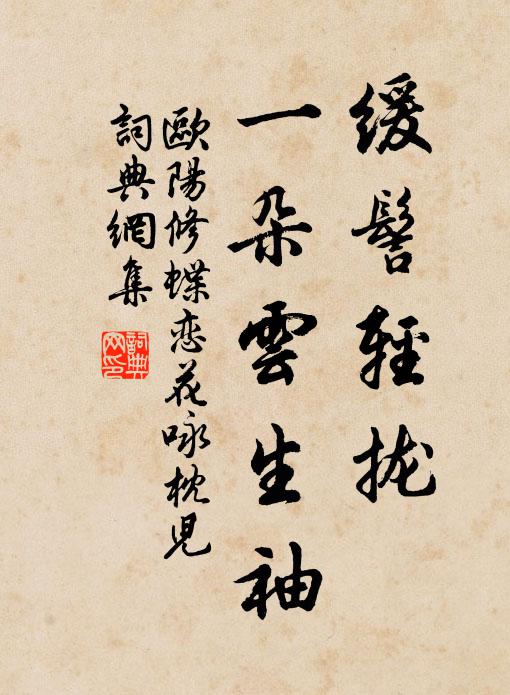 緩髻輕拢
一朵雲生袖
歐陽修蝶恋花咏枕児
詞典網集
詞典网印